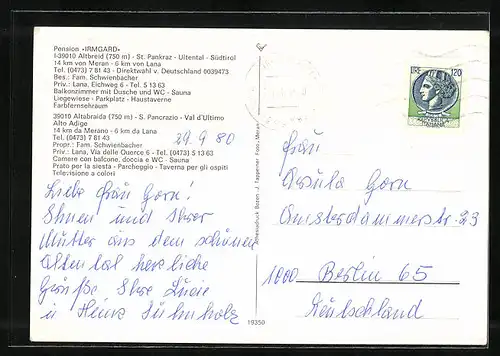 Pension «IRMGARD»
I-39010 Altbreid (750 m) - St. Pankraz - Ultental - Südtirol
14 km von Meran - 6 km von Lana
Tel. (0473) 7 81 43 - Direktwahl v. Deutschland 0039473
Bes.: Fam. Schwienbacher
Priv.: Lana, Eichweg 6 - Tel. 5 13 63
Balkonzimmer mit Dusche und WC - Sauna
Liegewiese - Parkplatz - Haustaverne
Farbfernsehraum
39010 Altabraida (750 m) - S. Pancrazio - Val d'Ultimo
Alto Adige
14 km da Merano - 6 km da Lana
Tel. (0473) 7 81 43
Propr.: Fam. Schwienbacher
Priv.: Lana, Via delle Querce 6 - Tel. 5 13 63
Camere con balcone, doccia e WC - Sauna
Prato per la siesta - Parcheggio - Taverna per gli ospiti
Televisione a colori
29.9.80
Liebe Frau Gorn!
Ihnen und Ihrer
Mutter aus dem schönen
Ultental herzliche
Grüße Ihre Lucie
u Heinz Kühnholz
19350
Athesiadruck Bozen - J. Tappeiner Foto, Meran
LIRE 120
Frau
Ursula Gorn
Amsterdammerstr. 23
1000 Berlin 65
Deutschland